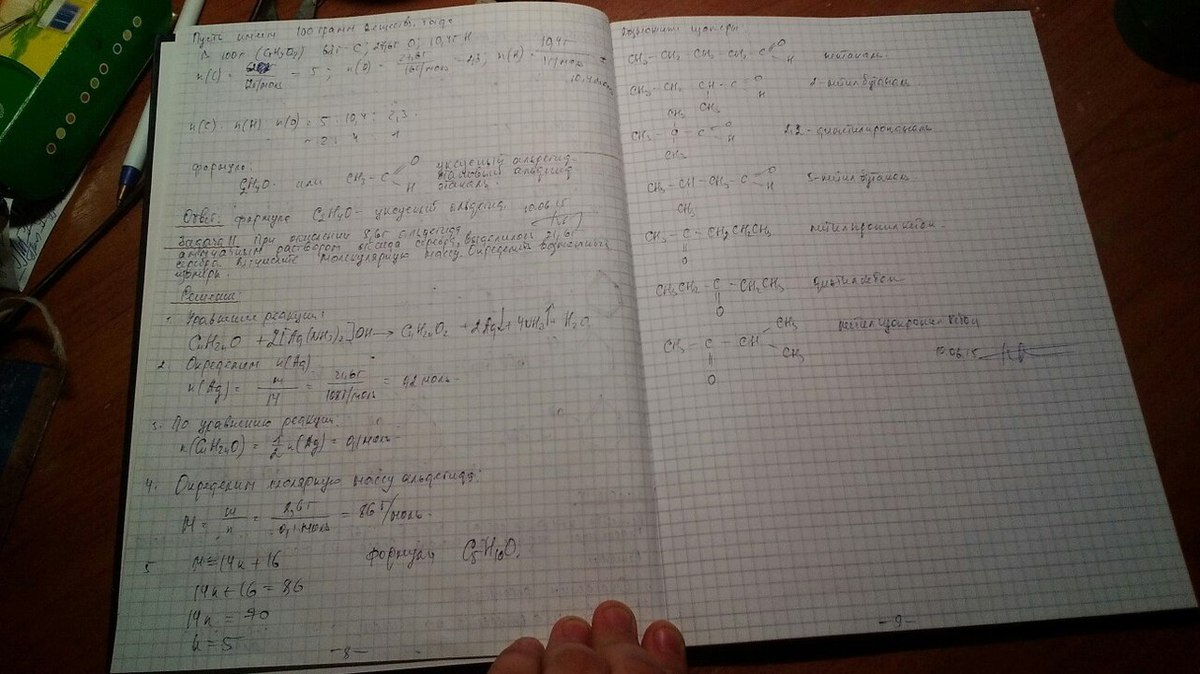 Пусть имеем 100 грамм вещества, тогда
n(C) : n(H) : n(O) = 5 : 10,4 : 2,3
~ 2 : 4 : 1
Формула:
C2H4O или CH3 – C O H уксусный альдегид
этаналь.
Ответ: формула C2H4O – уксусный альдегид. 10.06.15
Задача 11 При окислении 8,6г альдегида
аммиачным раствором оксида серебра выделилось 21,6г
серебра. Вычислите молекулярную массу. Определите возможные
изомеры.
Решение:
1. Уравнение реакции:
CnH2nO + 2[Ag(NH3)2]OH → CnH2nO2 + 2Ag↓ + 4NH3↑ + H2O
2. Определим n(Ag)
n(Ag) = m/M = 21,6г/108г/моль = 0,2 моль
3. По уравнению реакции:
n(CnH2nO) = 1/2 n(Ag) = 0,1 моль
4. Определим молярную массу альдегида:
M = m/n = 8,6г/0,1 моль = 86 г/моль.
5 M = 14n + 16 формула C5H10O.
14n + 16 = 86
14n = 70
n = 5
– 8 –
Возможные изомеры
CH3 – CH2 CH2 CH2 – C O H пентаналь
CH3 – CH2 CH – C O H 2-метилбутаналь
CH3
CH3
CH3 – C – C O H 2,2-диметилпропаналь
CH3
CH3 – CH – CH2 – C O H 3-метилбутаналь
CH3
CH3 – C – CH2CH2CH3 метилпропилкетон
O
CH3CH2 – C – CH2CH3 диэтилкетон
O
CH3 – C – CH CH3 CH3 метилизопропилкетон
O
10.06.15
– 9 –